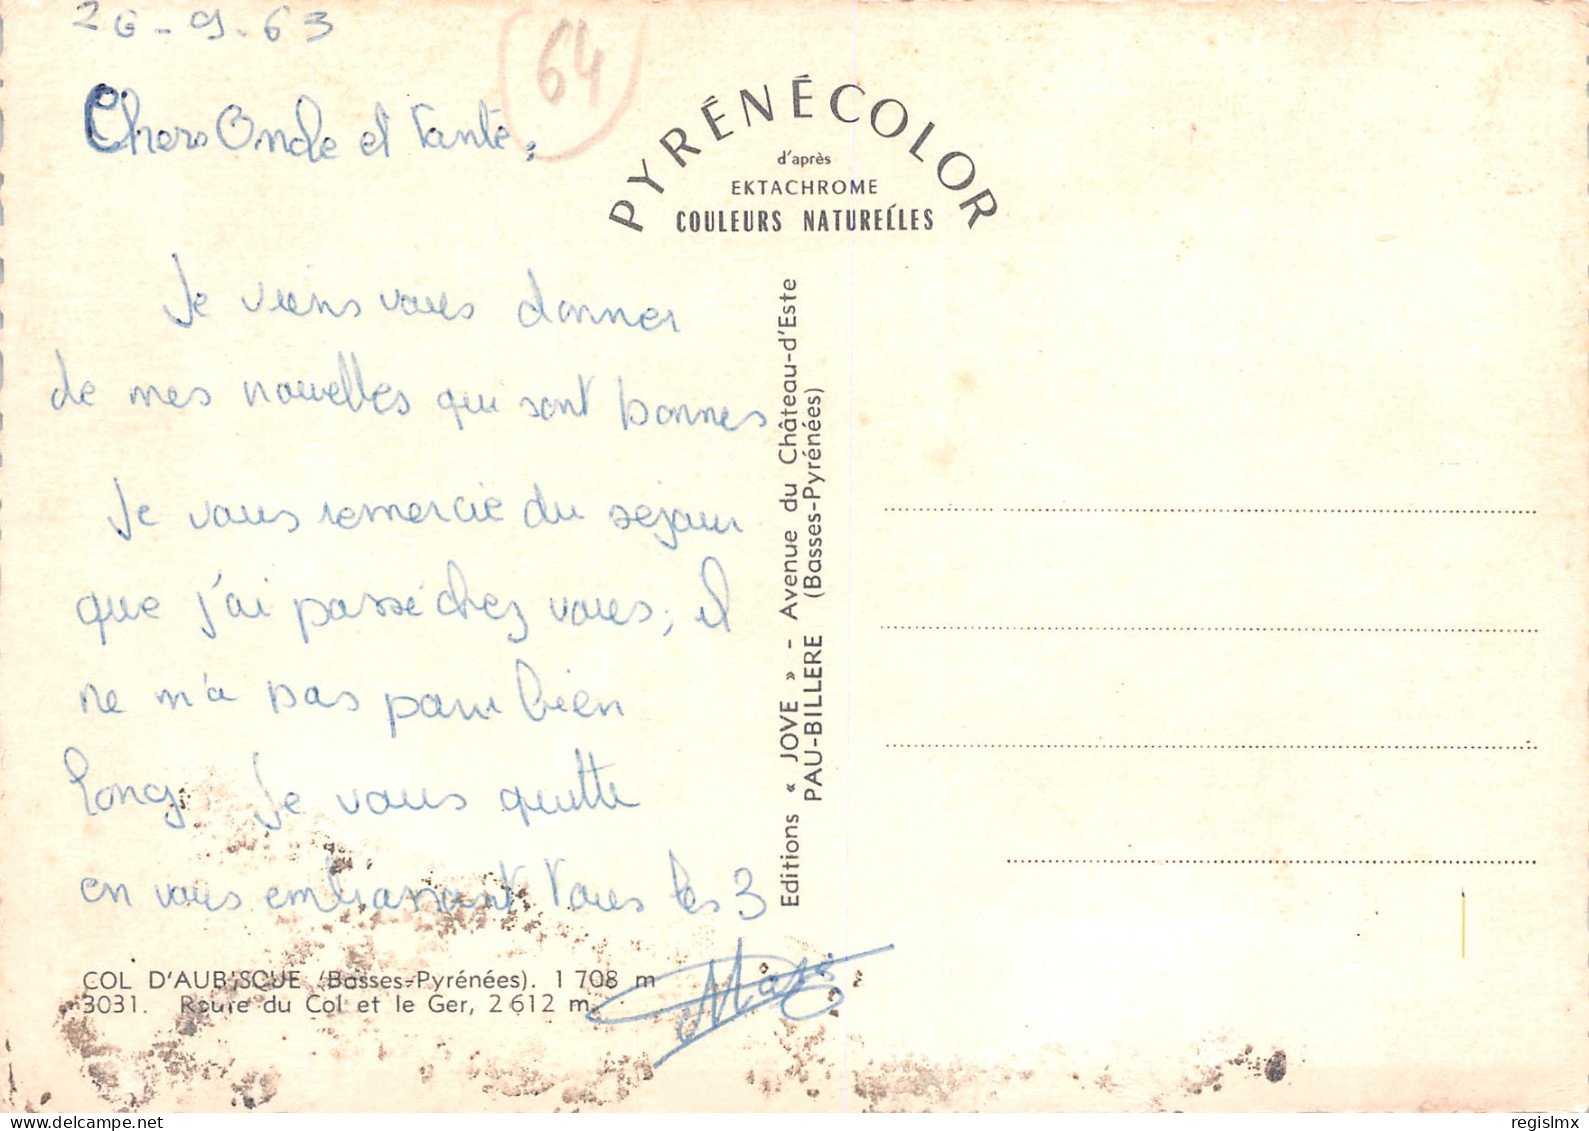 26-9-63
64
Chers Oncle et Tante,
Je viens vous donner
de mes nouvelles qui sont bonnes
Je vous remercie du séjour
que j'ai passé chez vous, il
ne m'a pas paru bien
long. Je vous quitte
en vous embrassant Tous les 3
PYRÉNÉCOLOR
d'après
EKTACHROME
COULEURS NATURELLES
Editions « JOVE » - Avenue du Château-d'Este
PAU-BILLERE (Basses-Pyrénées)
COL D'AUBISQUE (Basses-Pyrénées). 1 708 m
3031. Route du Col et le Ger, 2 612 m.
regislmx